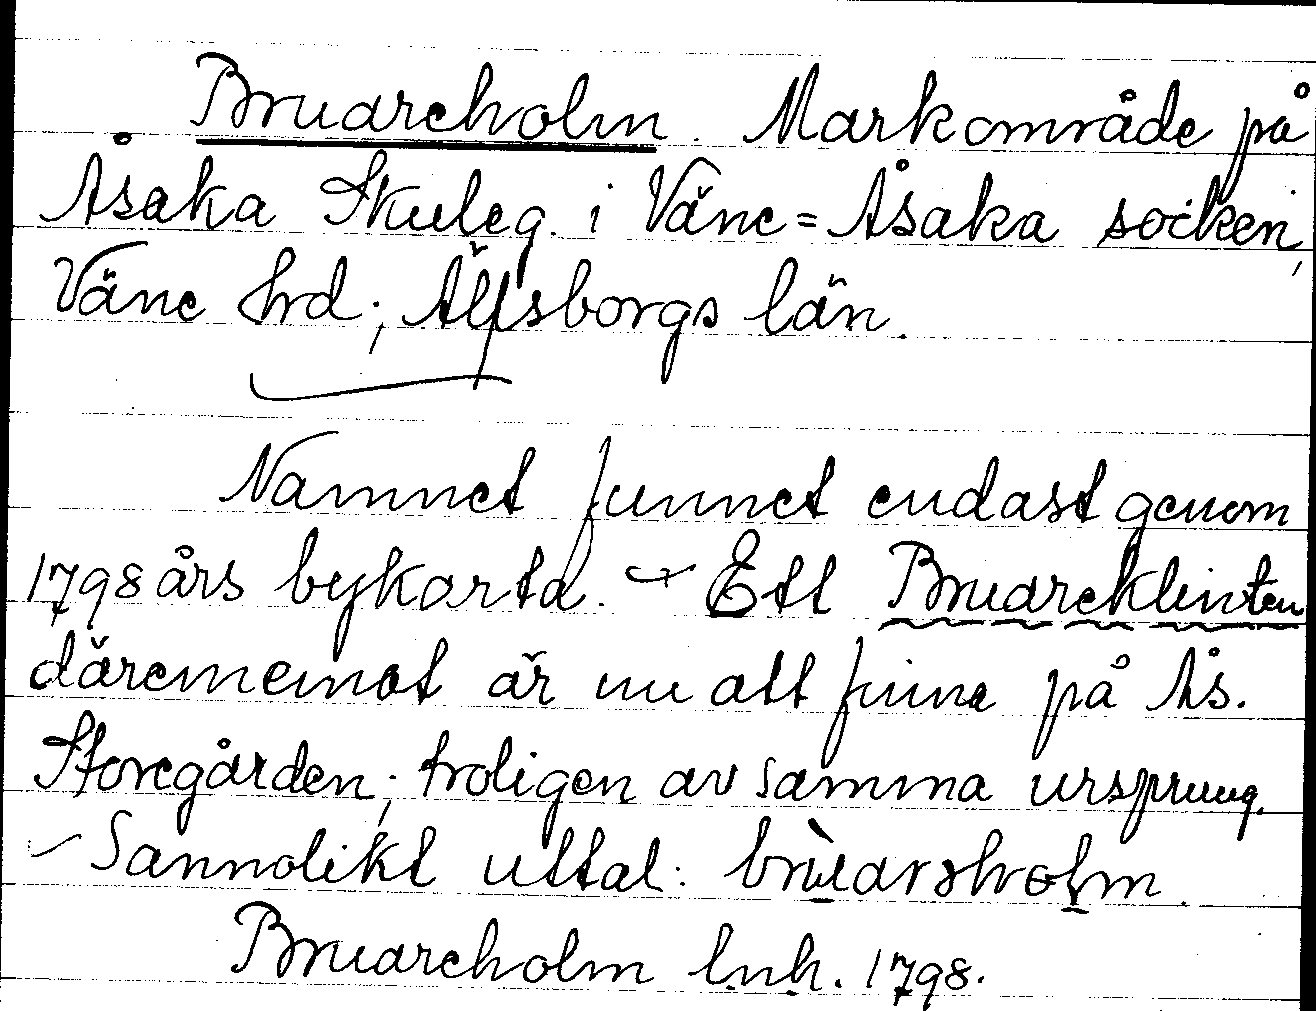 Bruareholm. Markområde på
Åsaka Skuleg. i Väne=Åsaka socken,
Väne hrd; Älfsborgs län.
Namnet funnet endast genom
1798 års bykarta. - Ett Bruareklinten
därememot är nu att finna på Ås.
Storegården; troligen av samma ursprung.
- Sannolikt uttal: brùarsholm.
Bruareholm l.n.h. 1798.